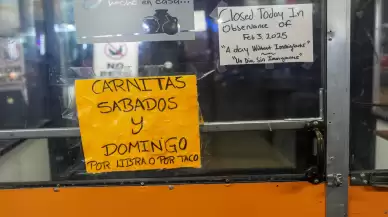 en casa...
Closed Today In
Observance of
Feb 3, 2025
"A day Without Immigrants"
"Un Dia Sin Immigrantes"
NO
CARNITAS
SABADOS
y
DOMINGO
POR LIBRA O POR TACO